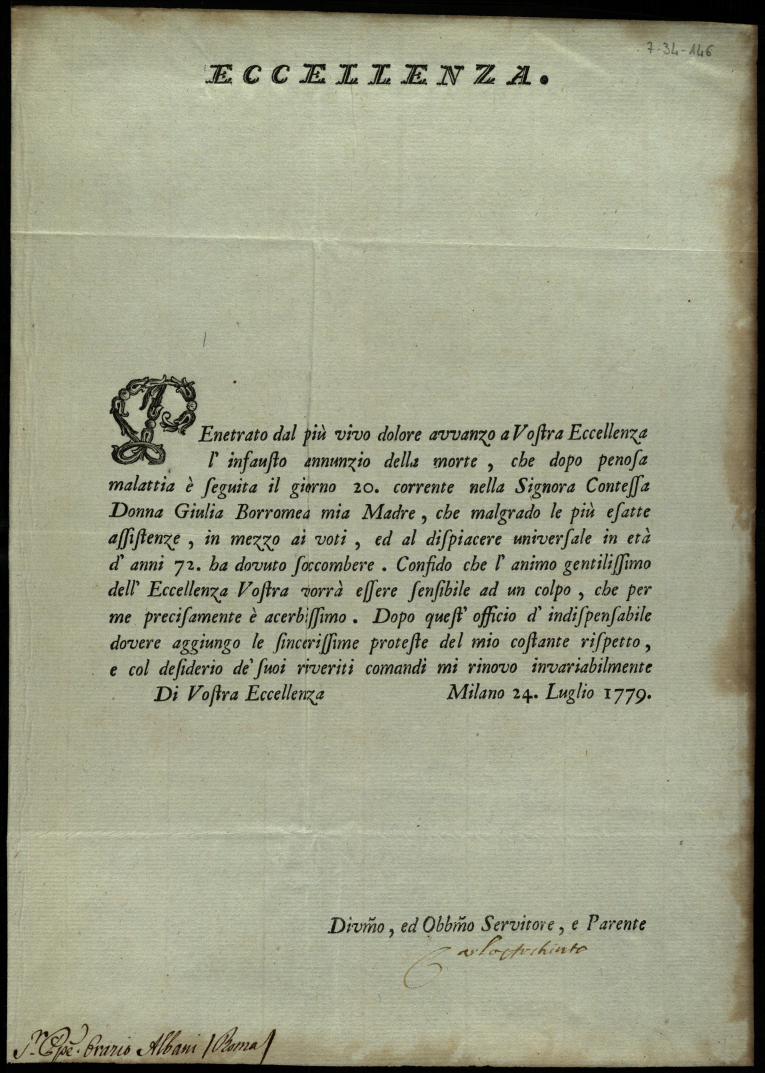 7-34-146
ECCELLENZA.
PEnetrato dal più vivo dolore avvanzo a Voſtra Eccellenza
l' infauſto annunzio della morte, che dopo penoſa
malattia è ſeguita il giorno 20. corrente nella Signora Conteſſa
Donna Giulia Borromea mia Madre, che malgrado le più eſatte
aſſiſtenze, in mezzo ai voti, ed al diſpiacere univerſale in età
d' anni 72. ha dovuto ſoccombere. Confido che l' animo gentiliſſimo
dell' Eccellenza Voſtra vorrà eſſere ſenſibile ad un colpo, che per
me preciſamente è acerbiſſimo. Dopo queſt' officio d' indiſpenſabile
dovere aggiungo le ſinceriſſime proteſte del mio coſtante riſpetto,
e col deſiderio de' ſuoi riveriti comandi mi rinovo invariabilmente
Di Voſtra Eccellenza Milano 24. Luglio 1779.
Divm̃o, ed Obbm̃o Servitore, e Parente
Orazio Albani (Roma)